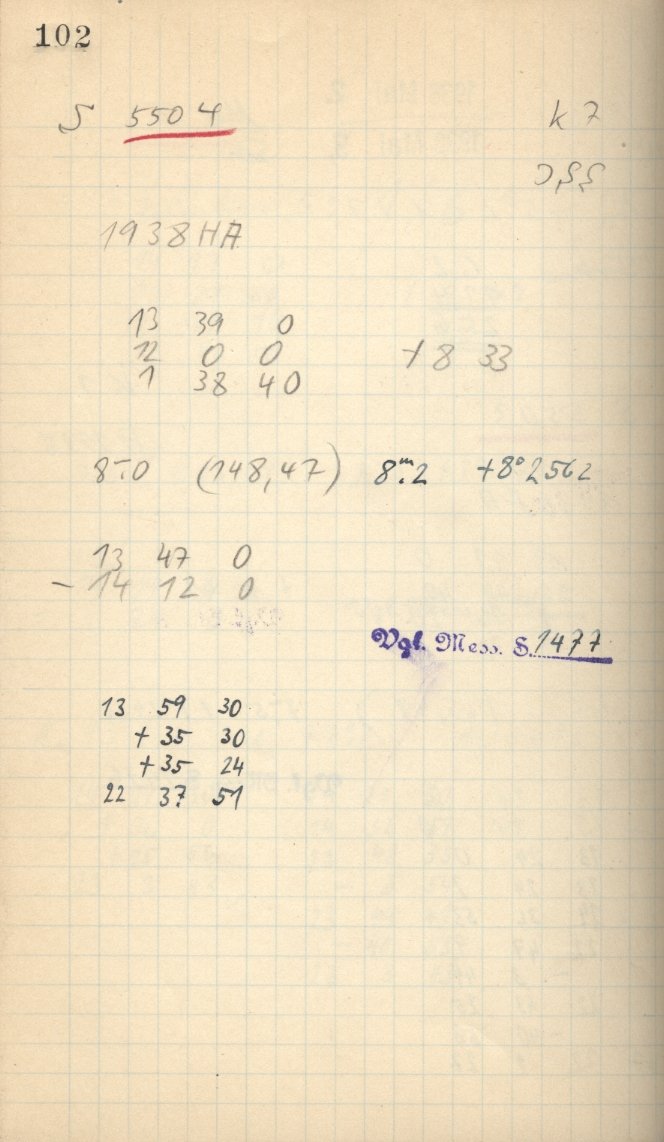 102
S 5504 k 7
1938 HA
13 39 0
12 0 0 +8 33
1 38 40
8.0 (148,47) 8ᵐ.2 +8° 2562
13 47 0
- 14 12 0
Vgl. Mess. S. 1477
13 59 30
+ 35 30
+ 35 24
22 37 51